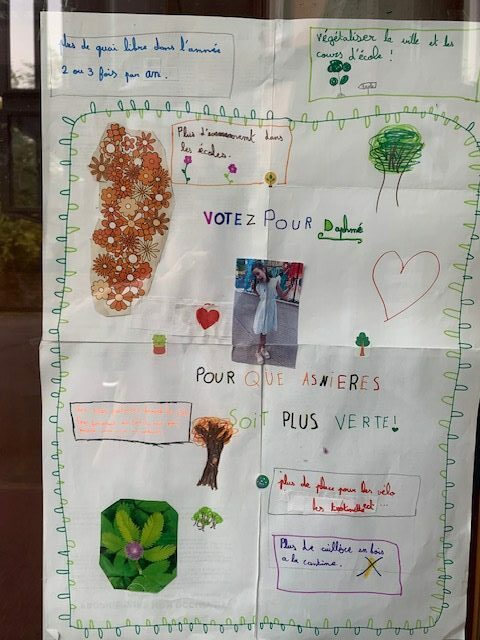 plus de quai libre dans l'année
2 ou 3 fois par an.
végétaliser la ville et les
cours d'école!
Plus d'évenement dans
les écoles.
VOTEZ POUR Daphné
POUR QUE ASNIERES
SOIT PLUS VERTE!
plus de place pour les vélo
les trottinettes...
Plus de cuillère en bois
a la cantine.